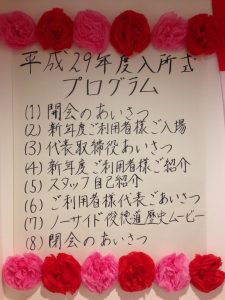 平成29年度入所式
プログラム
(1) 開会のあいさつ
(2) 新年度ご利用者様ご入場
(3) 代表取締役あいさつ
(4) 新年度ご利用者様ご紹介
(5) スタッフ自己紹介
(6) ご利用者様代表ごあいさつ
(7) ノーサイド 歴史ムービー
(8) 閉会のあいさつ